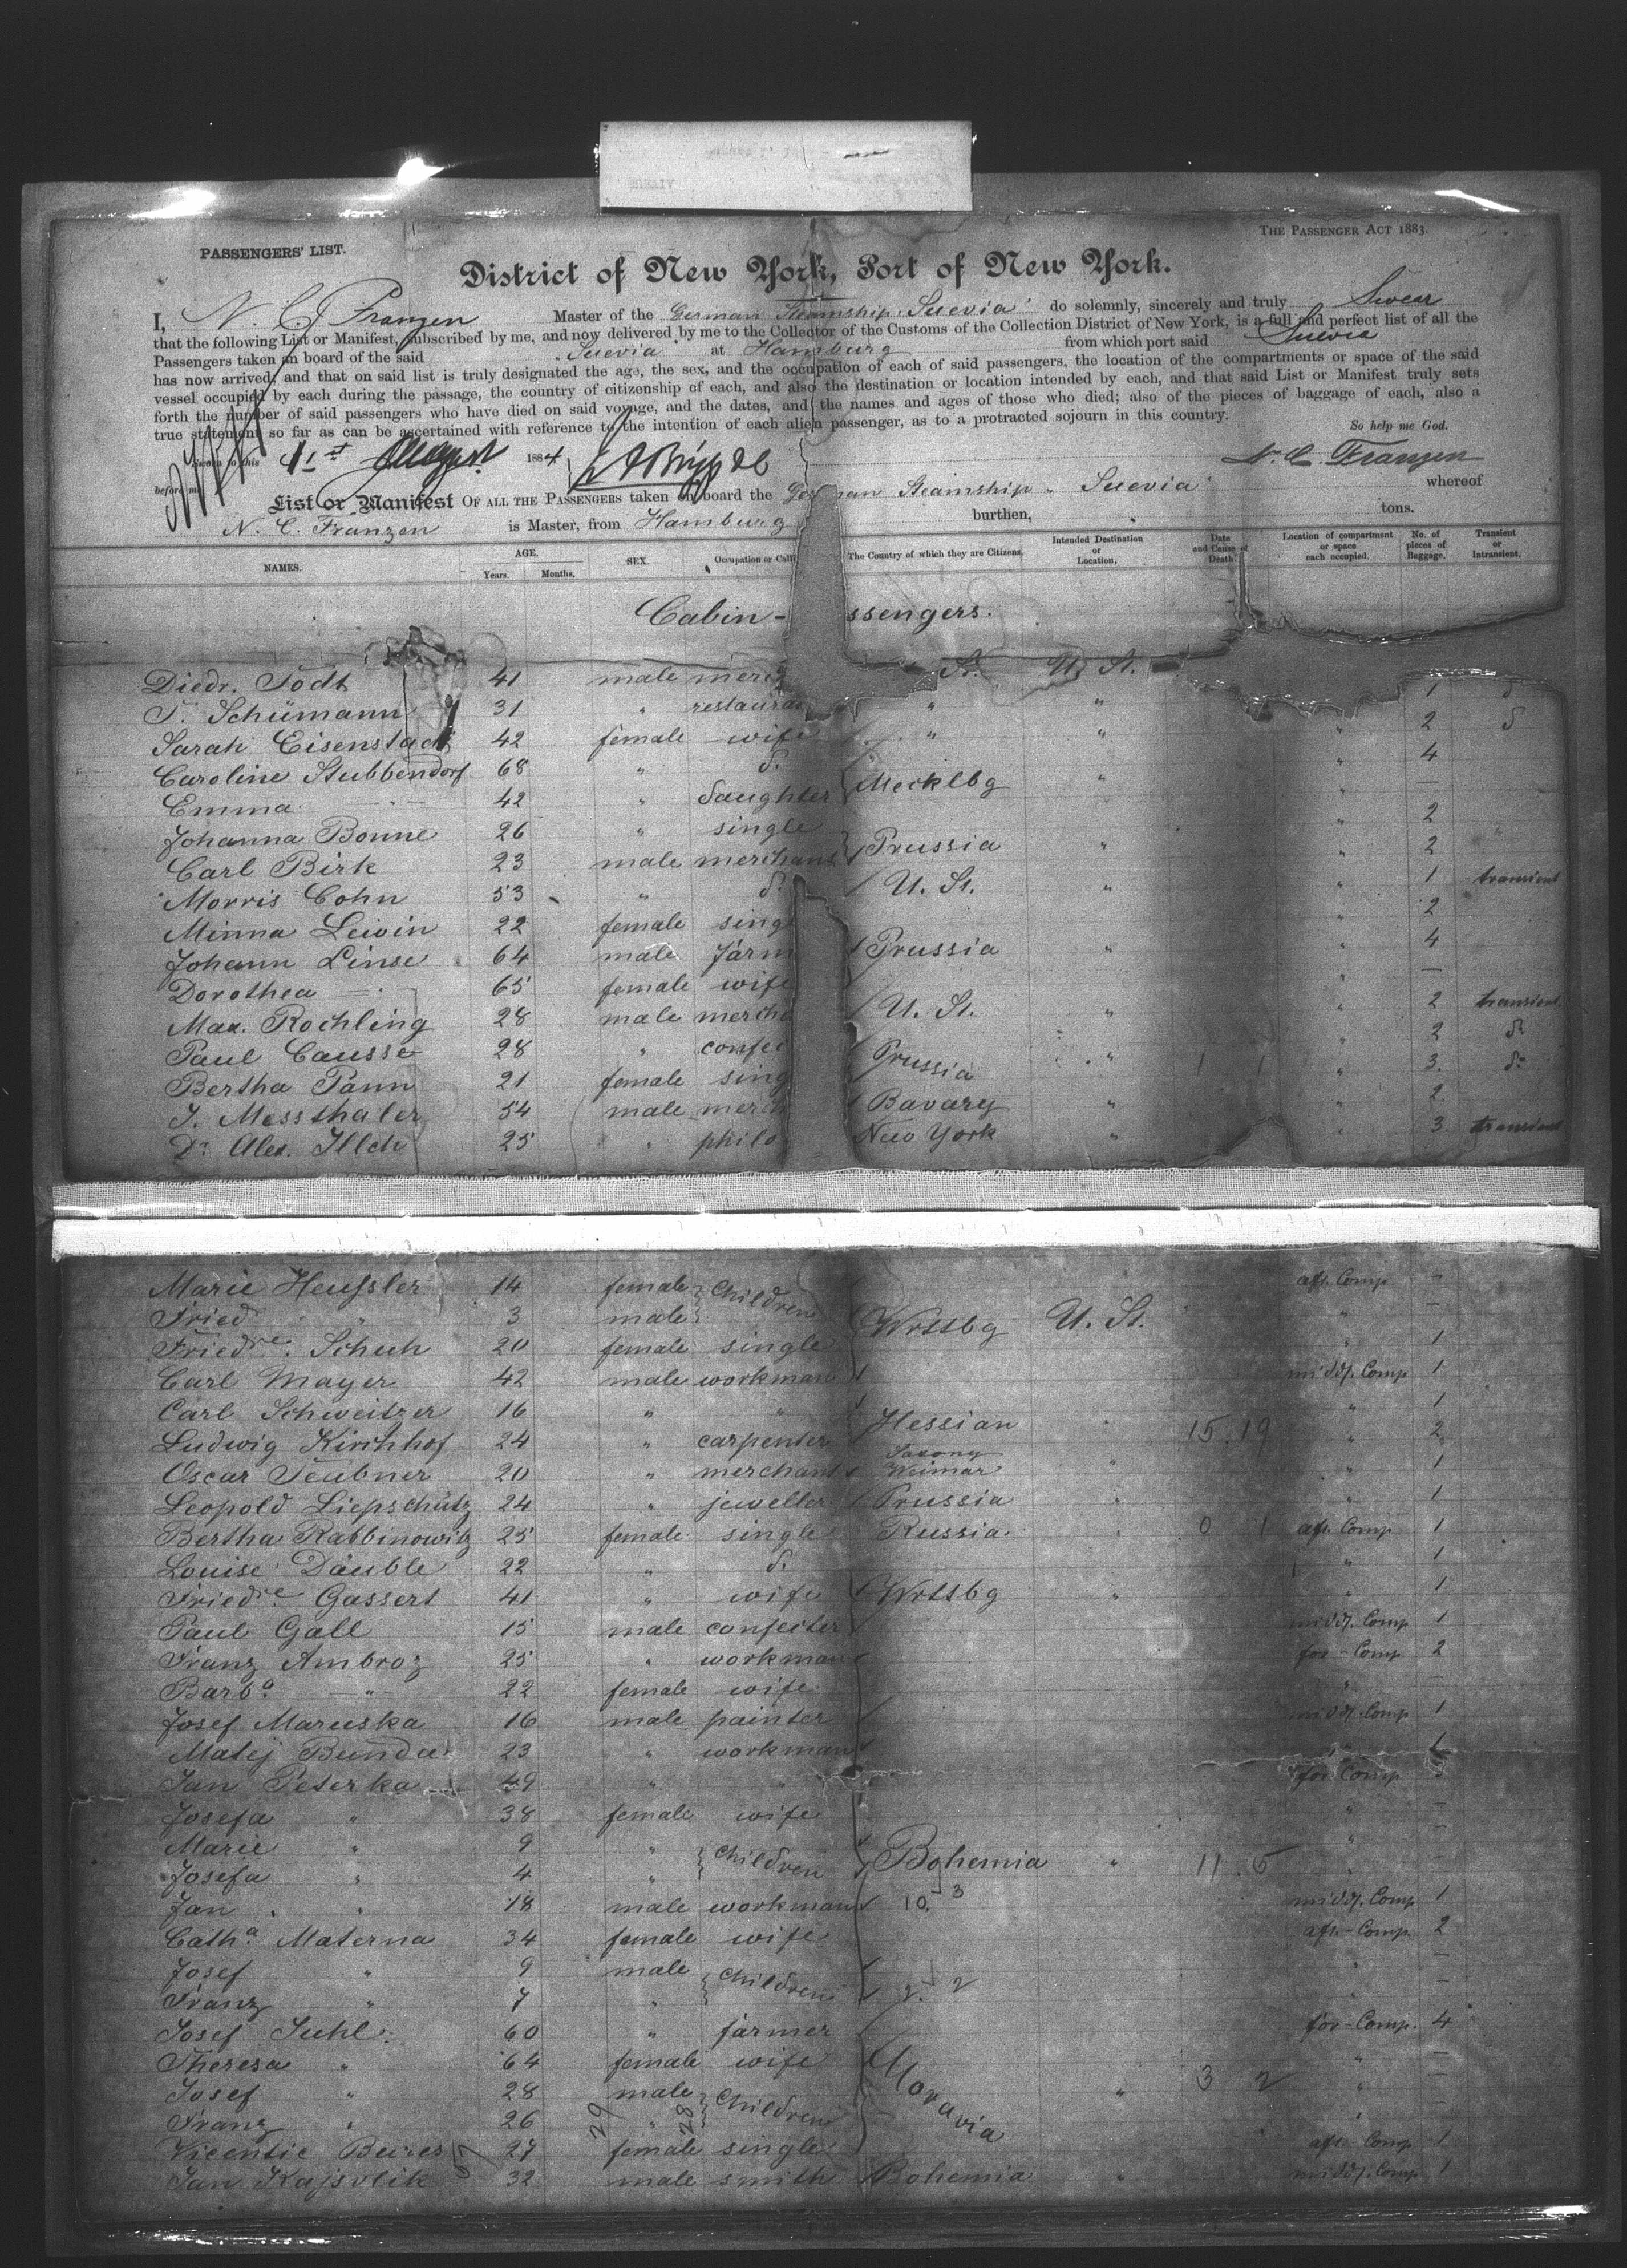 PASSENGERS' LIST.
THE PASSENGER ACT 1883.
District of New York, Port of New York.
I, N. C. Franzen Master of the German Steamship "Suevia" do solemnly, sincerely and truly Swear
that the following List or Manifest, subscribed by me, and now delivered by me to the Collector of the Customs of the Collection District of New York, is a full and perfect list of all the
Passengers taken on board of the said "Suevia" at Hamburg from which port said Suevia
has now arrived; and that on said list is truly designated the age, the sex, and the occupation of each of said passengers, the location of the compartments or space of the said
vessel occupied by each during the passage, the country of citizenship of each, and also the destination or location intended by each, and that said List or Manifest truly sets
forth the number of said passengers who have died on said voyage, and the dates, and the names and ages of those who died; also of the pieces of baggage of each, also a
true statement so far as can be ascertained with reference to the intention of each alien passenger, as to a protracted sojourn in this country.
So help me God.
Sworn to this 1st August 1884 N. C. Franzen
before me
List or Manifest OF ALL THE PASSENGERS taken on board the German Steamship "Suevia" whereof
N. C. Franzen is Master, from Hamburg burthen, tons.
NAMES. AGE. Years. Months. SEX. Occupation or Call The Country of which they are Citizens. Intended Destination or Location. Date and Cause of Death. Location of compartment or space each occupied. No. of pieces of Baggage. Transient or Intransient.
Cabin- ssengers.
Diedr. Todt 41 male merc St. U. St. 1
T. Schümann 31 " restaura " " 2
Sarah Eisenstadt 42 female wife " " " 4
Caroline Stubbendorf 68 " d. Mecklbg " " —
Emma — " — 42 " daughter " 2
Johanna Bonne 26 " single Prussia " " 2
Carl Birk 23 male merchant " 1 transient
Morris Cohn 53 " d. U. St. " " 2
Minna Lewin 22 female sing " 4
Johann Linse 64 male farm Prussia " " —
Dorothea — " 65 female wife " 2 transient
Max. Rochling 28 male mercha U. St. " " 2 d.
Paul Causse 28 " confec Prussia " " 3. d.
Bertha Pann 21 female sing " 2.
J. Messthaler 54 male merch Bavary " " 3. transient
Dr. Alex. Illch 25 " philo New York "
Marie Heussler 14 female Children aft. Comp —
Fried. " 3 male Wrtsbg U. St. " —
Friedre. Schuh 20 female single " 1
Carl Mayer 42 male workman midd. Comp 1
Carl Schweitzer 16 " " " 1
Ludwig Kirchhof 24 " carpenter Hessian " 15.19 " 2
Oscar Teubner 20 " merchant Saxony Weimar " " 1
Leopold Liepschütz 24 " jeweller Prussia " " 1
Bertha Rabbinowitz 25 female single Russia " 0 1 aft. Comp 1
Louise Däuble 22 " d. " 1
Friedre. Gassert 41 " wife Wrtsbg " " 1
Paul Gall 15 male confecter midd. Comp 1
Franz Ambroz 25 " workman for-Comp 2
Barba. — " 22 female wife " —
Josef Maruska 16 male painter midd. Comp 1
Matej Bunda 23 " workman " 1
Jan Peterka 49 " " for. Comp
Josefa " 38 female wife " —
Marie " 9 " Children " —
Josefa " 4 " Bohemia " 11.5 " —
Jan " 18 male workman 10. 3 midd. Comp 1
Catha. Materna 34 female wife aft-Comp. 2
Josef " 9 male Children " —
Franz " 7 " 2. 2 —
Josef Suhl 60 " farmer for-Comp. 4
Theresa " 64 female wife Moravia " —
Josef " 28 male Children " 3 2 " —
Franz " 26 29 " 28 " —
Vicentie Beires 27 female single aft-Comp 1
Jan Kajsvlik 32 male smith Bohemia " midd. Comp 1